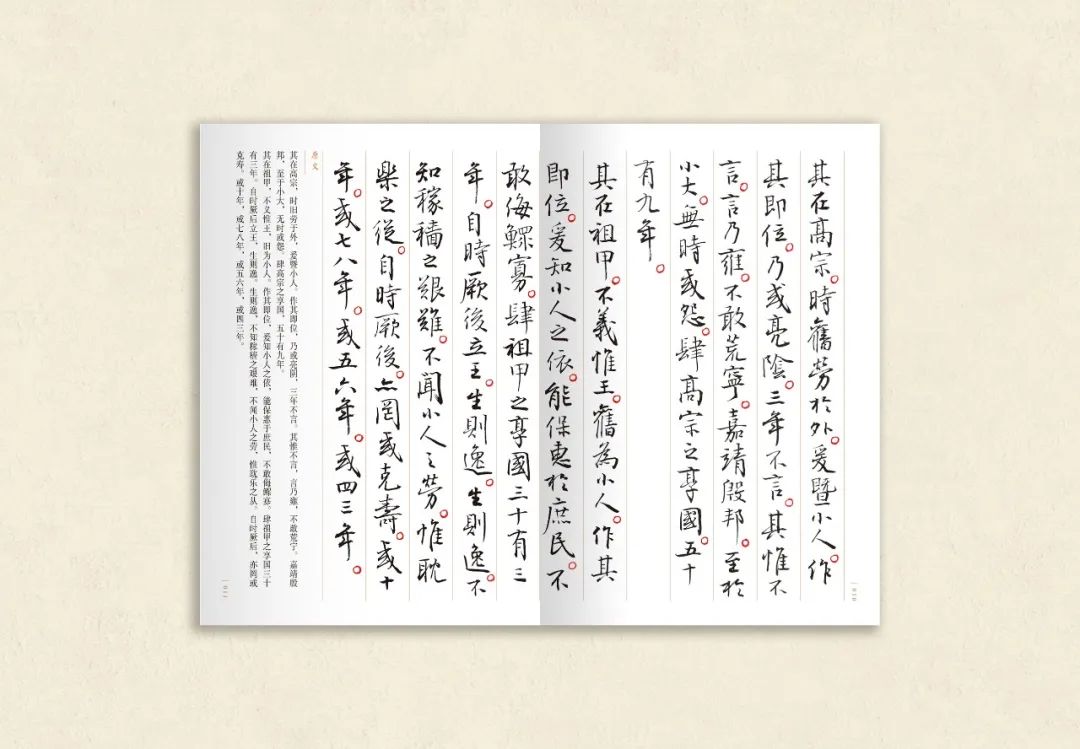 其在高宗。時舊勞於外。爰暨小人。作
其即位。乃或亮陰。三年不言。其惟不
言。言乃雍。不敢荒寧。嘉靖殷邦。至於
小大。無時或怨。肆高宗之享國。五十
有九年。
其在祖甲。不義惟王。舊為小人。作其
即位。爰知小人之依。能保惠於庶民。不
敢侮鰥寡。肆祖甲之享國三十有三
年。自時厥後立王。生則逸。生則逸。不
知稼穡之艱難。不聞小人之勞。惟耽
樂之從。自時厥後。亦罔或克壽。或十
年。或七八年。或五六年。或四三年。
原文
其在高宗，时旧劳于外，爰暨小人。作其即位，乃或亮阴，三年不言。其惟不言，言乃雍，不敢荒宁。嘉靖殷
邦，至于小大，无时或怨。肆高宗之享国，五十有九年。
其在祖甲，不义惟王，旧为小人。作其即位，爰知小人之依，能保惠于庶民，不敢侮鳏寡。肆祖甲之享国三十
有三年。自时厥后立王，生则逸。生则逸，不知稼穑之艰难，不闻小人之劳，惟耽乐之从。自时厥后，亦罔或
克寿。或十年，或七八年，或五六年，或四三年。
010
011